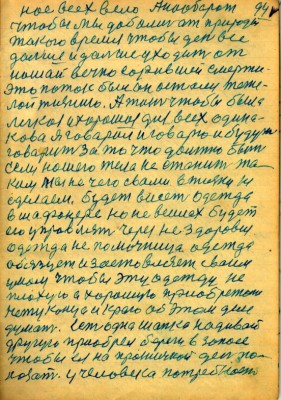 ное всех вело Анаоборот 94
чтобы мы добились от природы
такого время чтобы ден все
дальше и дальше уходит от
нашай вечно
Это поток был он остался тяже-
лой жизнию. А там чтобы была
легкое и хорошое для всех одина-
кова Я говарил и говарю и буду
говарит за то что должно быт
если нашего тела не станит та-
ким мы не чего с вами в жизни не
сделаем. будет висет одежда
в шафонере но не вешах будет
его управлят через не здоровия
одежда не помочница одежда
обязует и заставляет своим
умом чтобы эту одежду не
плохую а хорошую приобретат
нету конца и краю об этом деле
думат. Есть одна шапка надивай
другую приобрел береги в запасе
чтобы ея на празничной ден по-
казат. у человека потребност